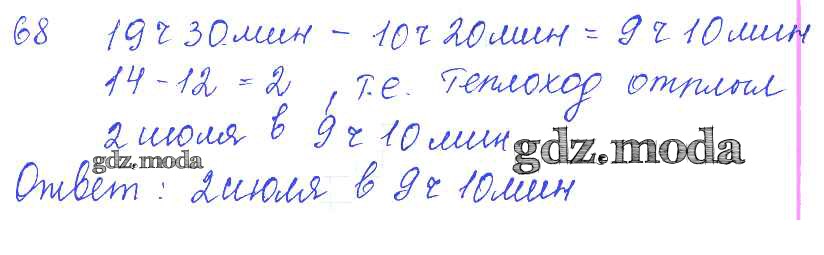 68 19 ч 30 мин - 10 ч 20 мин = 9 ч 10 мин
14 - 12 = 2, т.е. теплоход отплыл
2 июля в 9 ч 10 мин
gdz.moda
gdz.moda
Ответ: 2 июля в 9 ч 10 мин